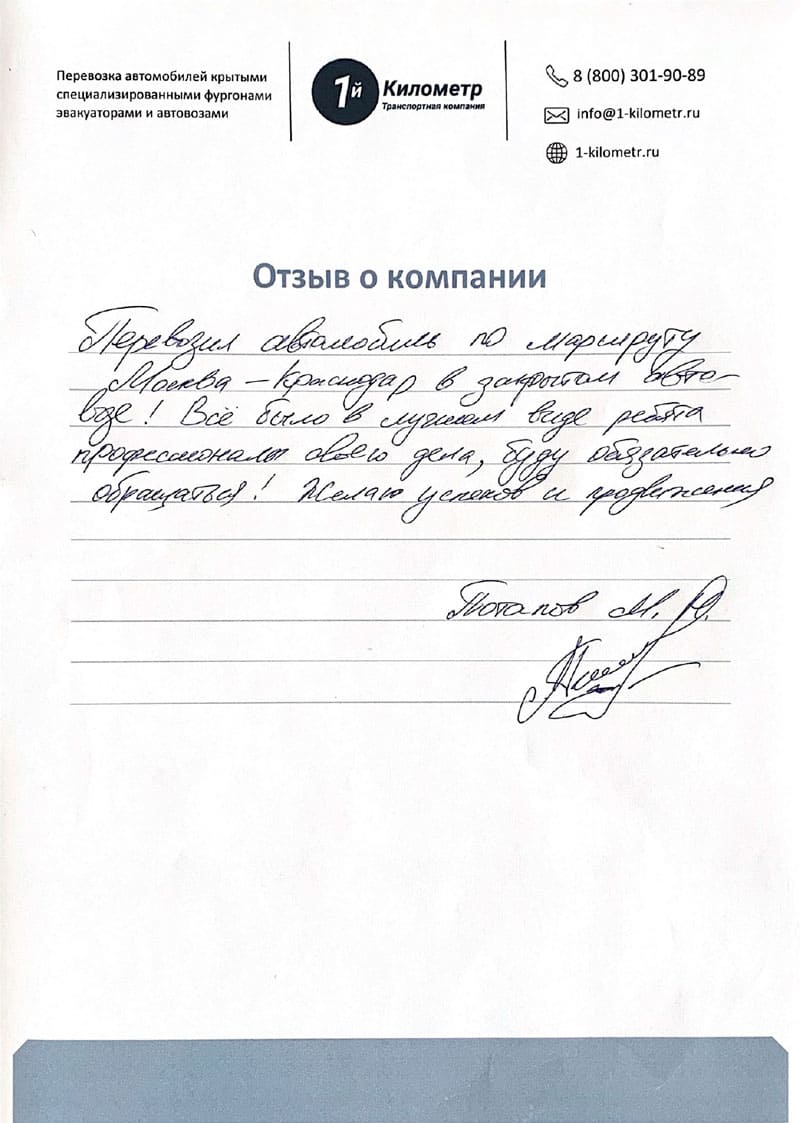 Перевозка автомобилей крытыми
специализированными фургонами
эвакуаторами и автовозами
1й Километр
Транспортная компания
8 (800) 301-90-89
info@1-kilometr.ru
1-kilometr.ru
Отзыв о компании
Перевозил автомобиль по маршруту
Москва – Краснодар в закрытом авто-
возе! Всё было в лучшем виде ребята
профессионалы своего дела, буду обязательно
обращаться! Желаю успехов и продвижения
Потапов М. Ю.